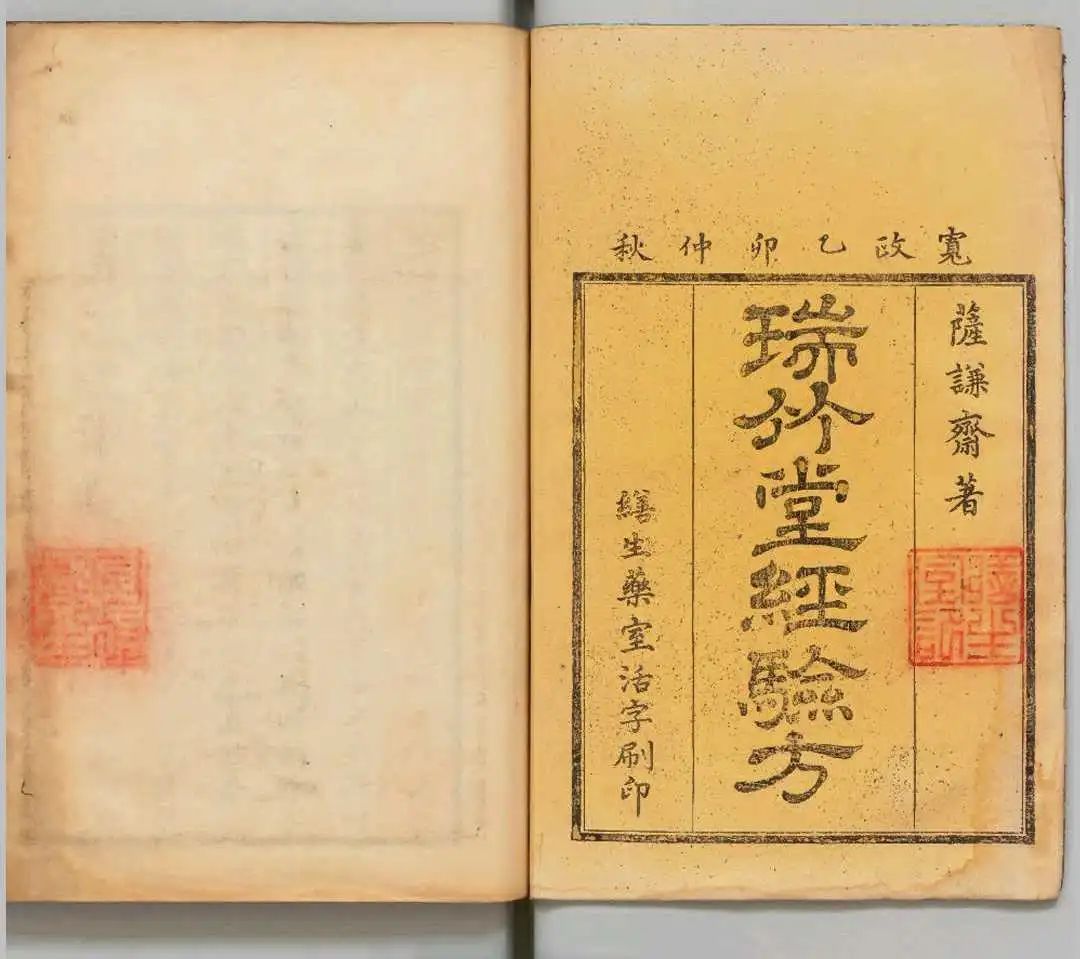 寬政乙卯仲秋
薩謙齋著
瑞竹堂經驗方
繕生藥室活字刷印